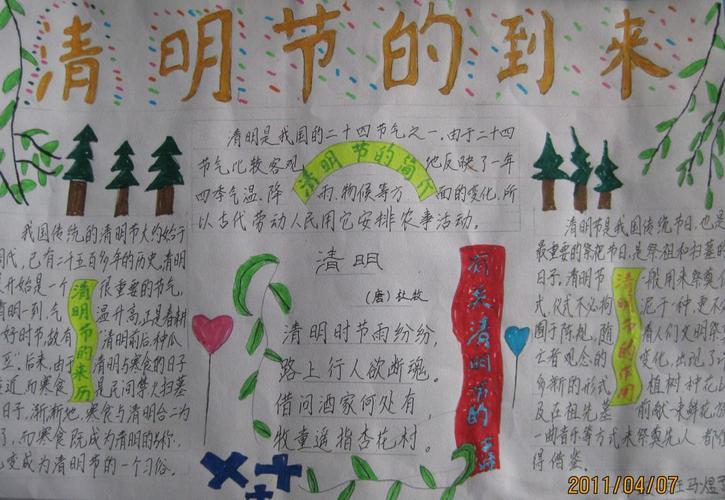 清明节的到来
清明是我国的二十四节气之一。由于二十四
节气比较客观 地反映了一年
四季气温、降 雨、物候等方 面的变化,所
以古代劳动人民用它安排农事活动。
清明节的简介
我国传统的清明节大约始于
周代,已有二千五百多年的历史。清明
开始是一个 很重要的节气,
清明一到,气 温升高,正是春耕
好时节,故有 “清明前后,种瓜
豆”。后来,由于 清明与寒食的日子
近,而寒食 是民间禁火扫墓
日子,渐渐地,寒食与清明合二为
了,而寒食既成为清明的别称,
变成为清明节的一个习俗。
清明节的来历
清明
(唐)杜牧
清明时节雨纷纷,
路上行人欲断魂。
借问酒家何处有,
牧童遥指杏花村。
有关清明节的
清明节是我国传统节日,也
最重要的祭祀节日,是祭祖和扫墓的
日子。清明节 一般用来祭
式,仪式不必拘 泥于一种,更
囿于陈规,随 着人们文明
亡者观念的 变化,出现了
多新的形式, 植树种花
及在祖先墓 前献一束鲜花
一曲音乐等方式来祭奠先人,都
得借鉴。
清明节的作用
2011/04/07